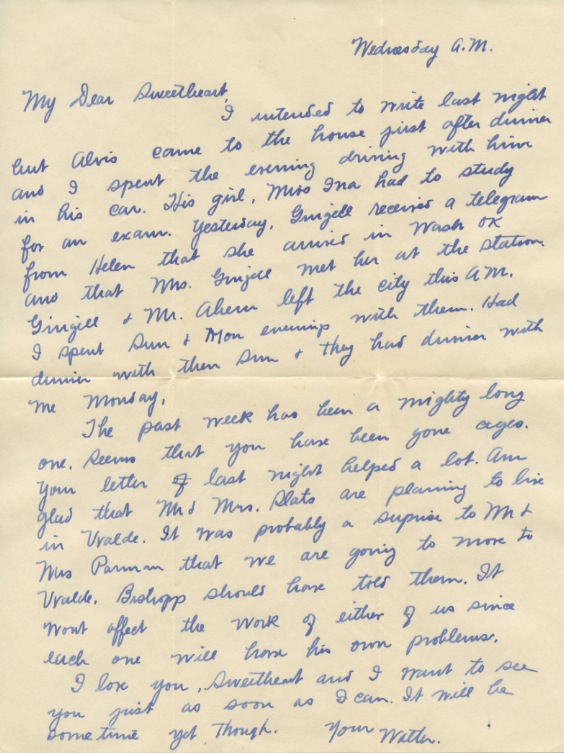 Wednesday A.M.
My Dear Sweetheart,
I intended to write last night
but Alvis came to the house just after dinner
and I spent the evening driving with him
in his car. His girl, Miss Ina had to study
for an exam. Yesterday, Gingell received a telegram
from Helen that she arrived in Wash OK
and that Mrs. Gingell met her at the station.
Gingell & Mr. Ahern left the city this A.M.
I spent Sun & Mon evenings with them. Had
dinner with them Sun & they had dinner with
me Monday.
The past week has been a mighty long
one. Seems that you have been gone ages.
Your letter of last night helped a lot. Am
glad that Mr & Mrs. Plats are planning to live
in Uvalde. It was probably a suprise to Mr &
Mrs Parman that we are going to move to
Uvalde. Bishopp should have told them. It
wont affect the work of either of us since
each one will have his own problems.
I love you, Sweetheart and I want to see
you just as soon as I can. It will be
sometime yet though. Your Walter.